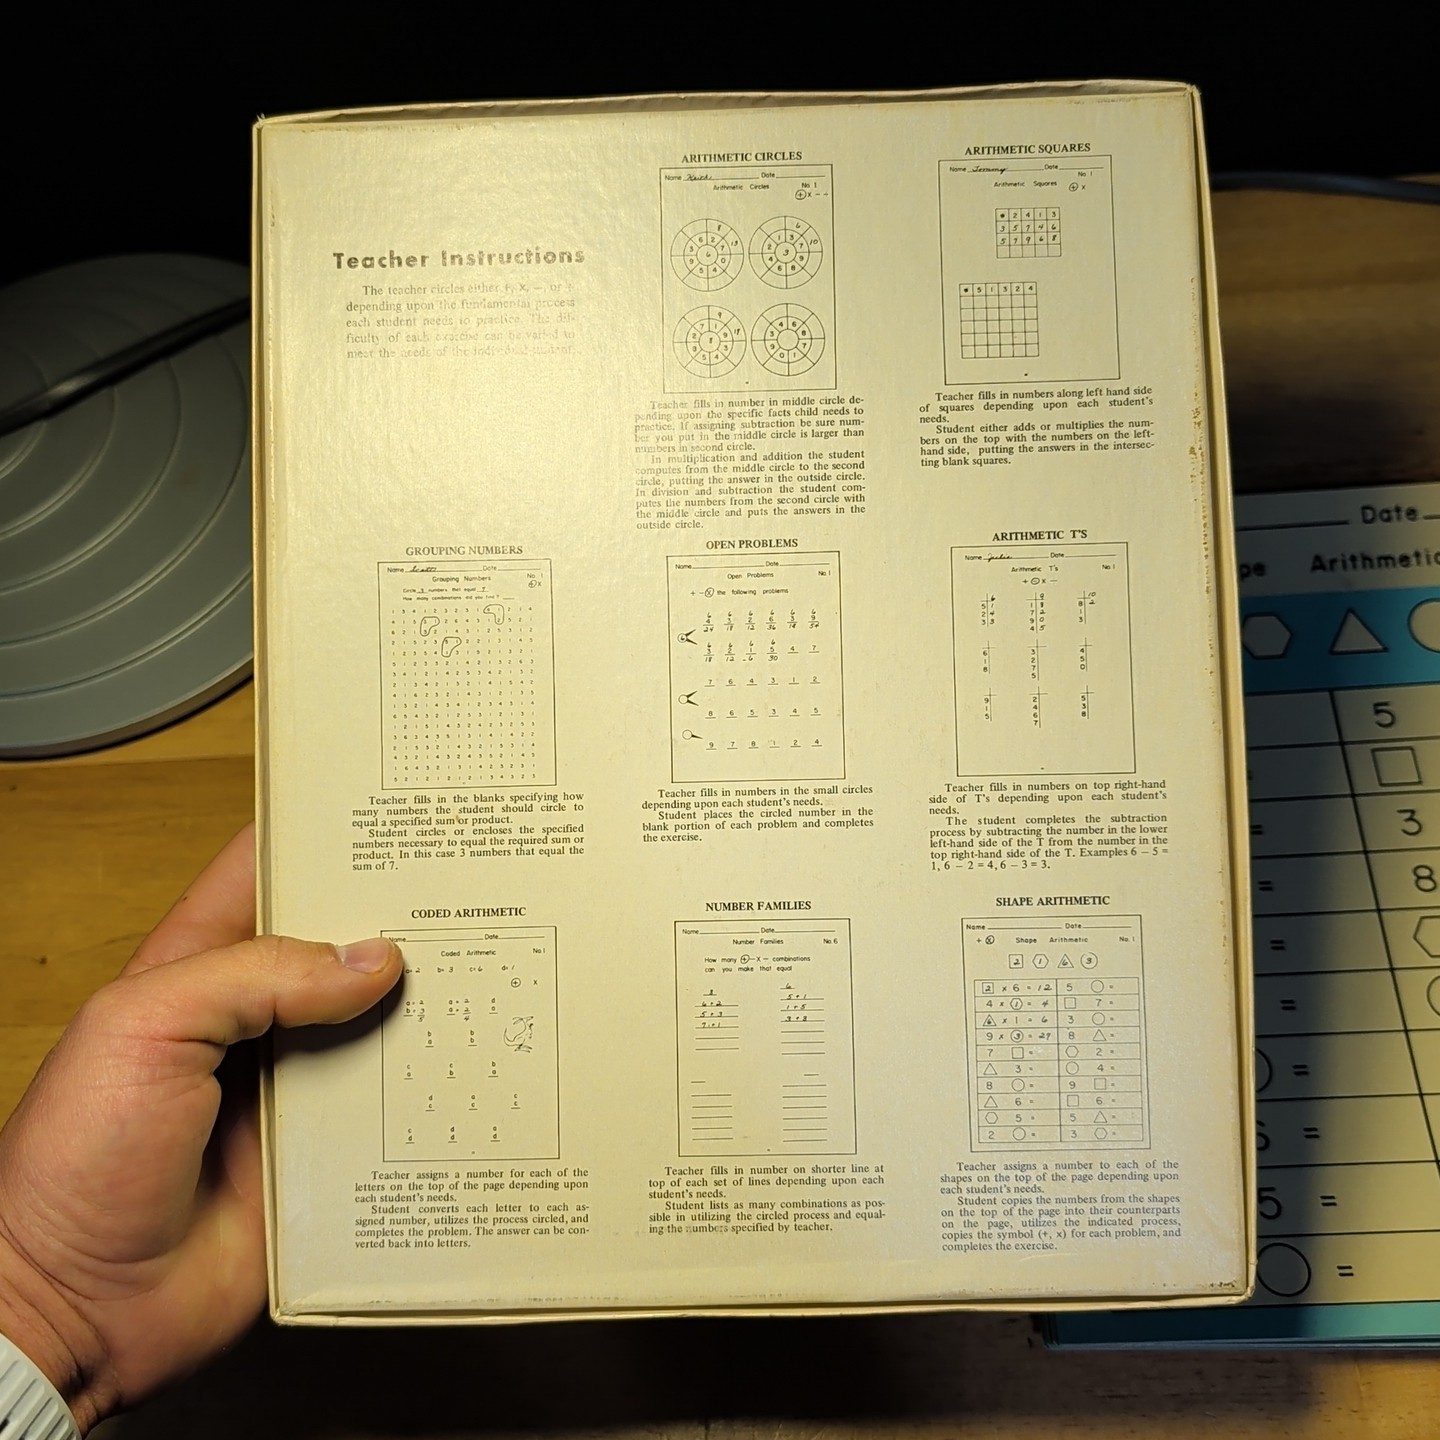 Teacher Instructions
The teacher circles either +, x, −, or ÷
depending upon the fundamental process
each student needs to practice. The dif-
ficulty of each exercise can be varied to
meet the needs of the individual student.
ARITHMETIC CIRCLES
Name Keith Date
Arithmetic Circles No. 1
Teacher fills in number in middle circle de-
pending upon the specific facts child needs to
practice. If assigning subtraction be sure num-
ber you put in the middle circle is larger than
numbers in second circle.
In multiplication and addition the student
computes from the middle circle to the second
circle, putting the answer in the outside circle.
In division and subtraction the student com-
putes the numbers from the second circle with
the middle circle and puts the answers in the
outside circle.
ARITHMETIC SQUARES
Name Tommy Date
No. 1
Arithmetic Squares + x
2 4 1 3
3 5 7 4 6
5 7 9 6 8
5 1 3 2 4
Teacher fills in numbers along left hand side
of squares depending upon each student's
needs.
Student either adds or multiplies the num-
bers on the top with the numbers on the left-
hand side, putting the answers in the intersec-
ting blank squares.
GROUPING NUMBERS
Name Scott Date
Grouping Numbers No. 1
+ x
Circle 3 numbers that equal 7
How many combinations did you find?
Teacher fills in the blanks specifying how
many numbers the student should circle to
equal a specified sum or product.
Student circles or encloses the specified
numbers necessary to equal the required sum or
product. In this case 3 numbers that equal the
sum of 7.
OPEN PROBLEMS
Name Date
Open Problems No 1
+ − x the following problems
7 6 4 3 1 2
8 6 5 3 4 5
9 7 8 1 2 4
Teacher fills in numbers in the small circles
depending upon each student's needs.
Student places the circled number in the
blank portion of each problem and completes
the exercise.
ARITHMETIC T'S
Name Julie Date
Arithmetic T's No 1
Teacher fills in numbers on top right-hand
side of T's depending upon each student's
needs.
The student completes the subtraction
process by subtracting the number in the lower
left-hand side of the T from the number in the
top right-hand side of the T. Examples 6 − 5 =
1, 6 − 2 = 4, 6 − 3 = 3.
CODED ARITHMETIC
Name Date
Coded Arithmetic No 1
a= 2 b= 3 c= 6 d= 1
+ x
Teacher assigns a number for each of the
letters on the top of the page depending upon
each student's needs.
Student converts each letter to each as-
signed number, utilizes the process circled, and
completes the problem. The answer can be con-
verted back into letters.
NUMBER FAMILIES
Name Date
Number Families No. 6
How many + − x − combinations
can you make that equal
8 6
6+2 5+1
5+3 1+5
7+1 3+3
Teacher fills in number on shorter line at
top of each set of lines depending upon each
student's needs.
Student lists as many combinations as pos-
sible in utilizing the circled process and equal-
ing the numbers specified by teacher.
SHAPE ARITHMETIC
Name Date
+ x Shape Arithmetic No. 1
2 1 6 3
2 x 6 = 12 5 =
4 x 1 = 4 7 =
6 x 1 = 6 3 =
9 x 3 = 27 8 =
7 = 2 =
3 = 4 =
8 = 9 =
6 = 6 =
5 = 5 =
2 = 3 =
Teacher assigns a number to each of the
shapes on the top of the page depending upon
each student's needs.
Student copies the numbers from the shapes
on the top of the page into their counterparts
on the page, utilizes the indicated process,
copies the symbol (+, x) for each problem, and
completes the exercise.
Date
Arithmetic
5
3
= 8
=
=
=
=
5 =
=